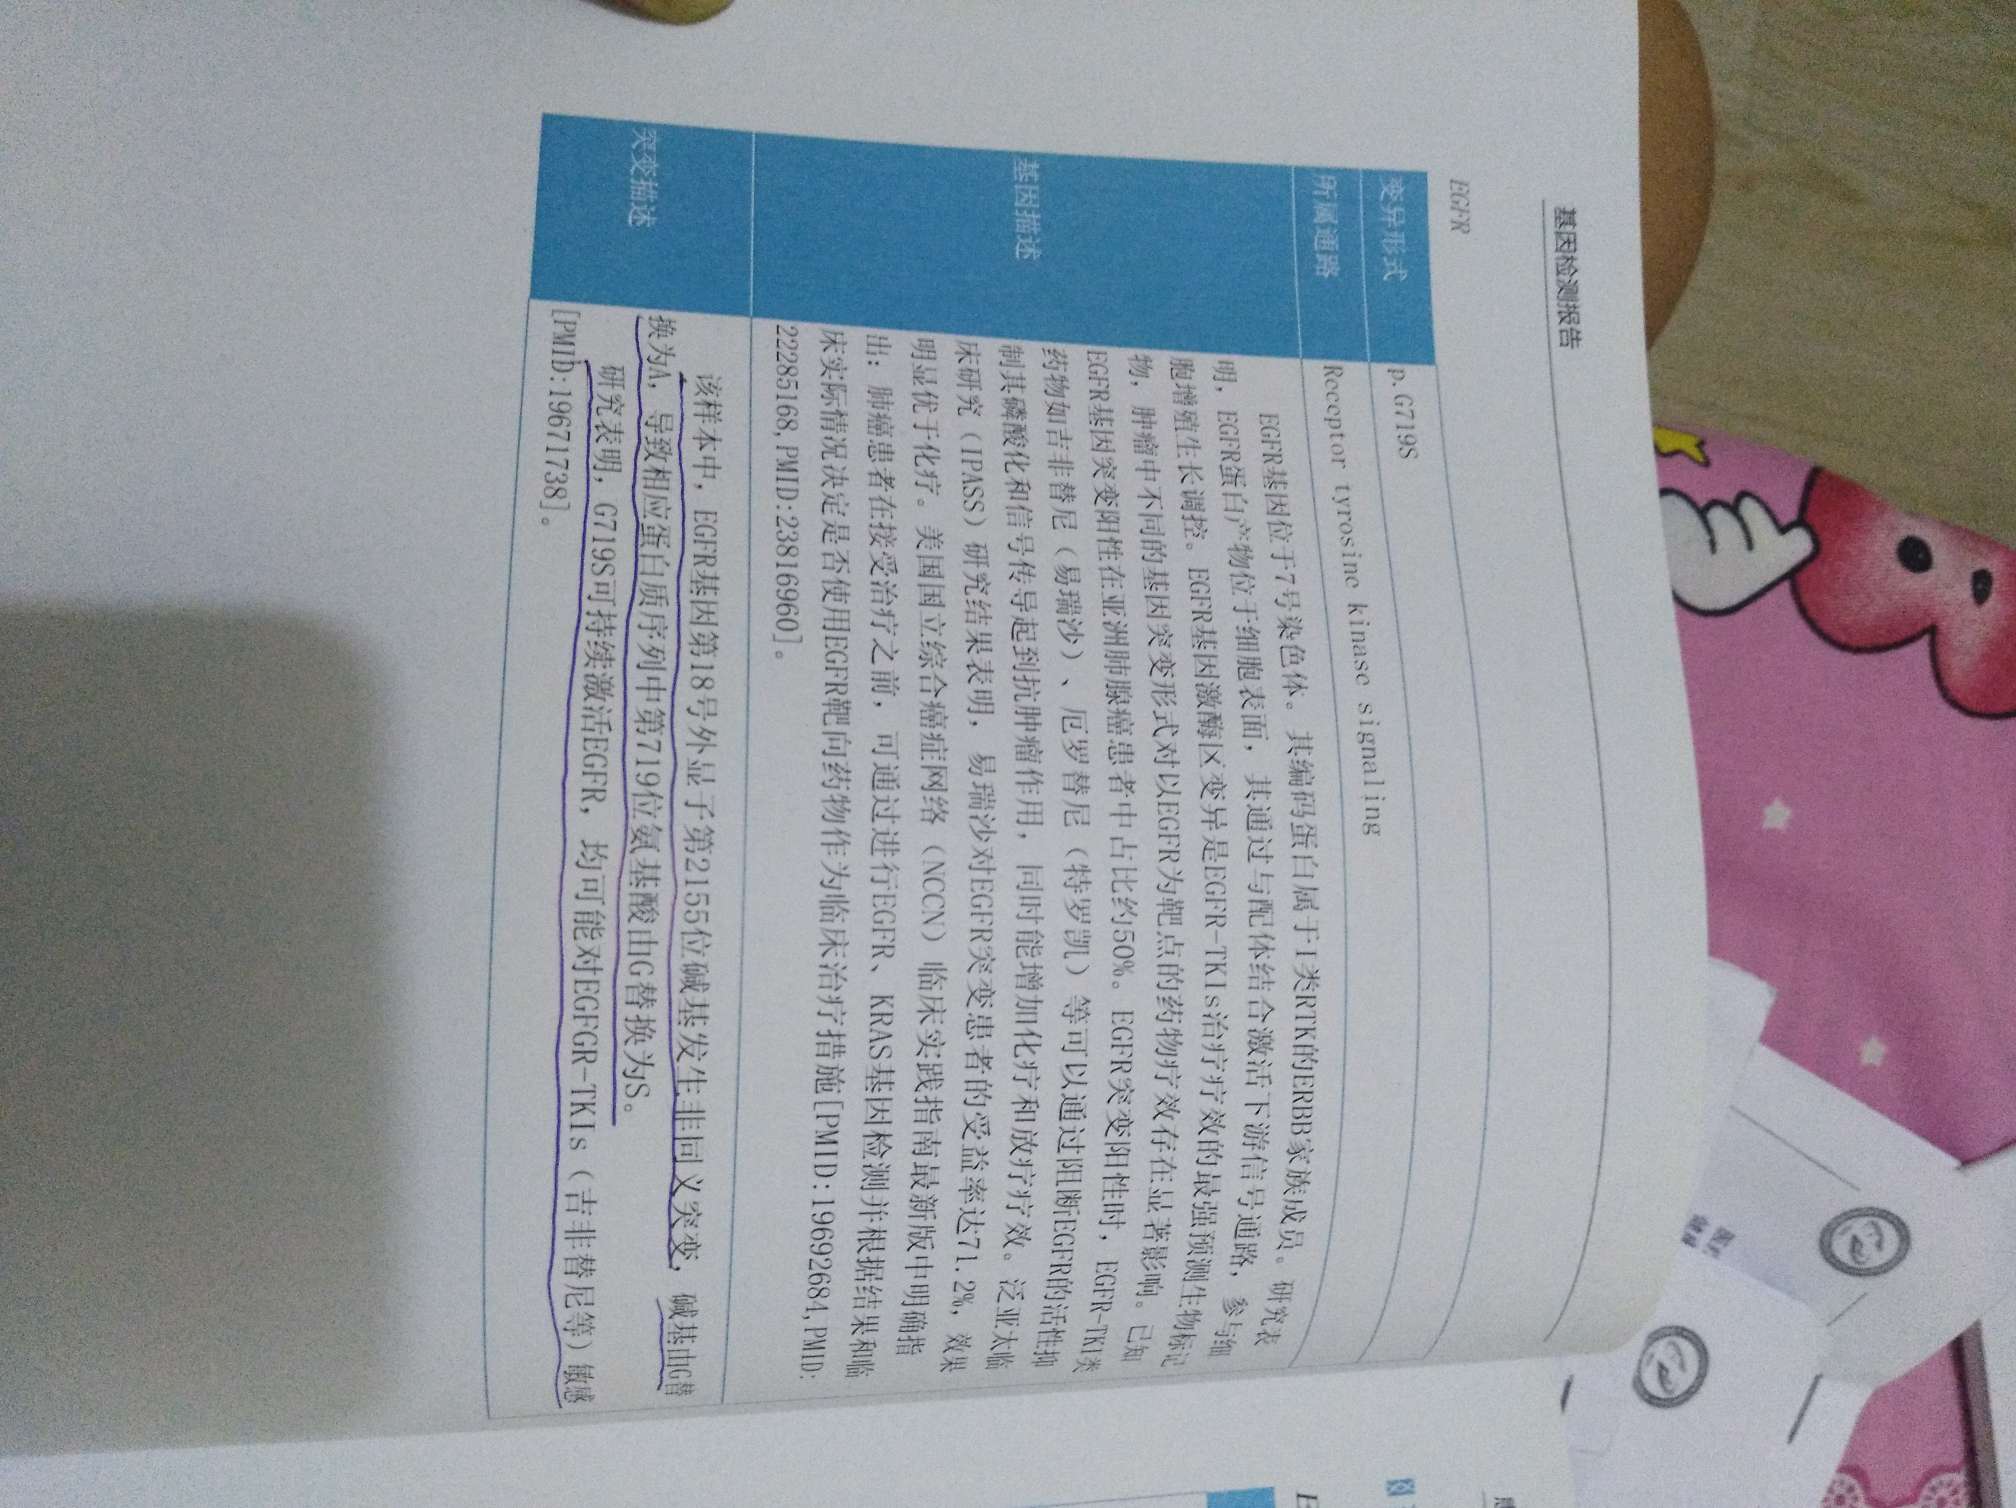 基因检测报告
EGFR
变异形式 p.G719S
所属通路 Receptor tyrosine kinase signaling
基因描述
EGFR基因位于7号染色体。其编码蛋白属于I类RTK的ERBB家族成员。研究表
明，EGFR蛋白产物位于细胞表面，其通过与配体结合激活下游信号通路，参与细
胞增殖生长调控。EGFR基因激酶区变异是EGFR-TKIs治疗疗效的最强预测生物标记
物，肿瘤中不同的基因突变形式对以EGFR为靶点的药物疗效存在显著影响。已知
EGFR基因突变阳性在亚洲肺腺癌患者中占比约50%。EGFR突变阳性时，EGFR-TKI类
药物如吉非替尼（易瑞沙）、厄罗替尼（特罗凯）等可以通过阻断EGFR的活性抑
制其磷酸化和信号传导起到抗肿瘤作用，同时能增加化疗和放疗疗效。泛亚太临
床研究（IPASS）研究结果表明，易瑞沙对EGFR突变患者的受益率达71.2%，效果
明显优于化疗。美国国立综合癌症网络（NCCN）临床实践指南最新版中明确指
出：肺癌患者在接受治疗之前，可通过进行EGFR、KRAS基因检测并根据结果和临
床实际情况决定是否使用EGFR靶向药物作为临床治疗措施[PMID:19692684,PMID:
22285168,PMID:23816960]。
突变描述
该样本中，EGFR基因第18号外显子第2155位碱基发生非同义突变，碱基由G替
换为A，导致相应蛋白质序列中第719位氨基酸由G替换为S。
研究表明，G719S可持续激活EGFR，均可能对EGFGR-TKIs（吉非替尼等）敏感
[PMID:19671738]。